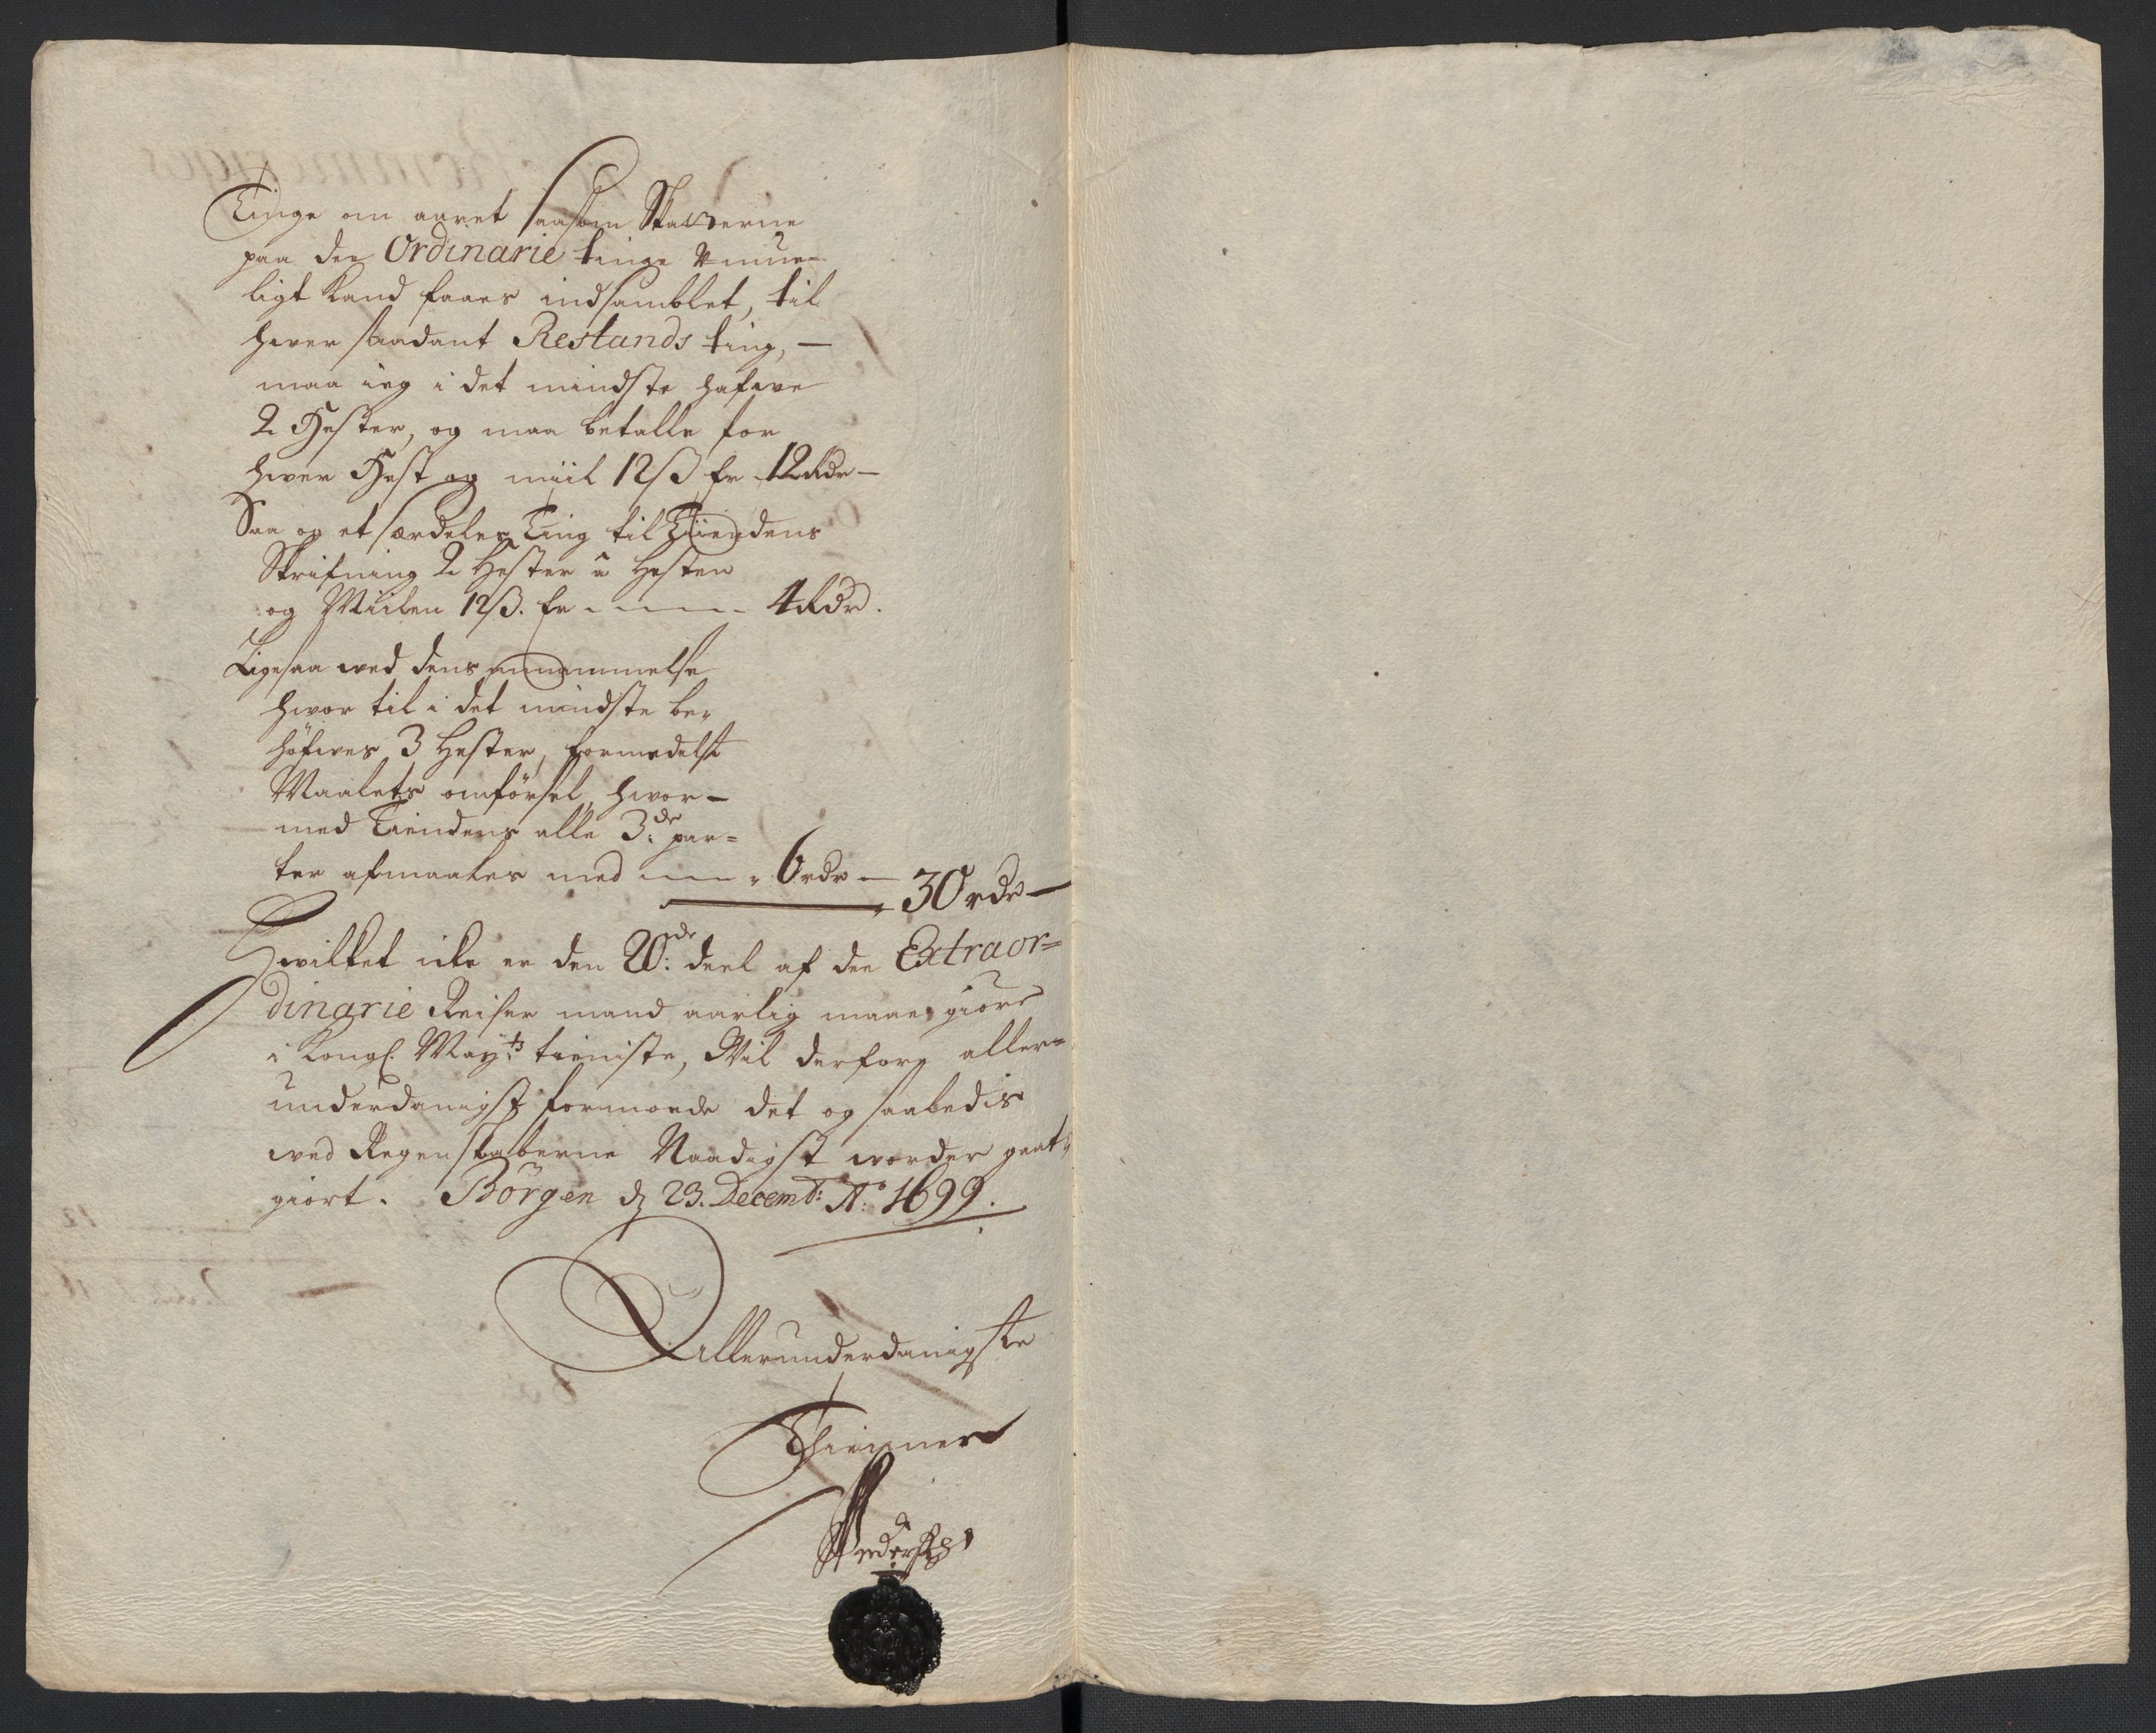 Tinge om aaret saasom Skatterne
paa de Ordinarie tinge Umue-
ligt kand faaes indsamblet, til
hver saadant Restands ting, —
maa ieg i det mindste hafve
2 Hester, og maa betalle for
hver Hest og miil 12 ß er 12 Rdr —
Saa og et særdeles Ting til Tiiendens
Skrifning 2 Hester â Hesten
og Miilen 12 ß. er - - - - 4 Rdr.
Ligesaa ved dens annammelse
hvor til i det mindste be-
höfves 3 Hester, formedelst
Maalets omförsel, hvor-
med Tiendens alle 3de par-
ter afmaales med - - - 6 rdr —
30 rdr —
Hvilket icke er den 20de deel af de Extraor=
dinarie Reiser mand aarlig maae giöre
i Kongl. Mayts tieniste, Vil derfore aller=
underdanigst formoede det og saaledis
ved Regenskaberne Naadigst vorder gaat-
giort. Börgen d 23. Decemb: Ao 1699.
Allerunderdanigste
Thienner